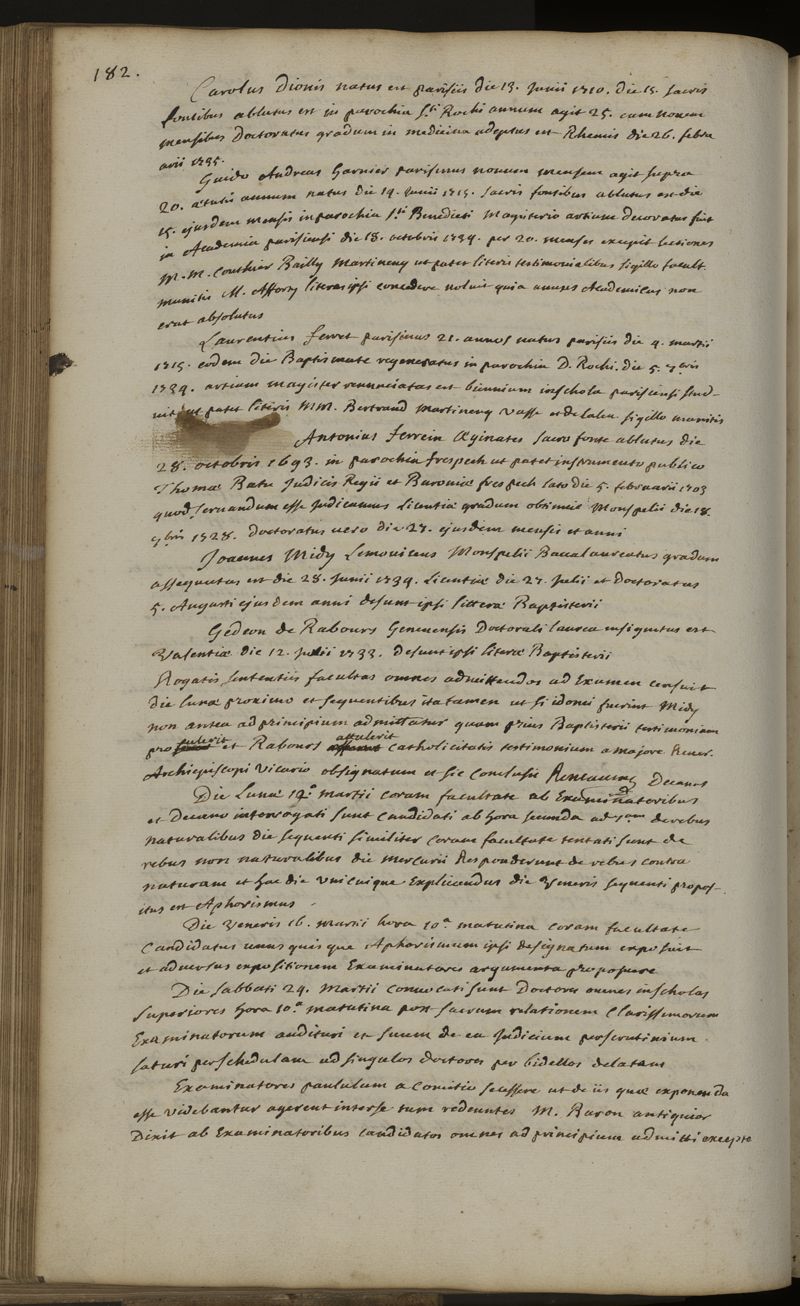 182.
Carolus Dionis natus est parisiis die 13. Junii 1710. die 15. sacris
fontibus ablutus est in parochia Sti Rochi annum agit 25. cum novem
mensibus Doctoratus gradum in medicina adeptus est Rhemis die 26. febru
arii 1735.
Guido Andreas Garnier parisinus nonum mensem agit supra
20. ætatis annum natus die 14. Junii 1715. sacris fontibus ablutus est die
15. ejusdem mensis in parochia Sti Benedicti Magisterio artium decoratus fuit
in Academia parisiensi die 18. octobris 1734. per 20. menses excepit lectiones
M.M. Couthier Bailly Martinenq ut patet literis testimonialibus sigillo facult.
munitis M. Afforty literas ipsi concedere noluit quia annus Academicus non
erat absolutus
Laurentius ferret parisinus 21. annos natus parisiis die 4. martii
1715. eodem die Baptismate regeneratus in parochia D. Rochi. die 5. 7bris
1734. artium magister renunciatus est biennium in schola parisiensi stud-
uit ut patet literis MM. Bertrand Martinenq Vasse et de laleu sigillo munitis
Antonius ferrein Aginates sacro fonte ablutus die
28. octobris 1693. in parochia frespech ut patet instrumento publico
Thomæ Batu Judicis Regii et Baroniæ frespech lato die 5. februarii 1703
quod servandum esse judicamus Licentiæ gradum obtinuit Monspelii die 18.
9bris 1728. Doctoratus vero die 27. ejusdem mensis et anni
Joannes Midy Lemovicens Monspelii Baccalaureatus gradum
assequutus est die 28. Junii 1734. Licentiæ die 27. Julii et Doctoratus
5. Augusti ejusdem anni desunt ipsi litteræ Baptisterii
Gedeon de Rabours Genevensis Doctorali laurea insignitus est
Valentiæ die 12. Julii 1733. desunt ipsi literæ Baptisterii
Rogatis sententiis facultas omnes admittendos ad Examen censuit
die lunæ proximo et sequentibus ita tamen ut si idonei fuerint Midy
non antea ad principium admittatur quam prius Baptisterii testimonium
protulerit et Rabours attulerit catholicitatis testimonium a majore Rever.
Archiepiscopi Vicario obsignatum et sic conclusit Reneaume Decanus
Die Lunæ 12.a Martii coram facultate ab Examinatoribus
et Decano interrogati sunt Candidati ab hora secunda ad 7am de rebus
naturalibus die sequenti similiter coram facultate tentati sunt de
rebus non naturalibus die Mercurii Responderunt de rebus contra
naturam et hac die unicuique Explicandus die Veneris sequenti propos-
itus est Aphorismus
Die Veneris 16. martii hora 10.a matutina coram facultate
Candidatus unus quisque Aphorismum ipsi designatum exposuit
et adversus expositionem Examinatores argumenta proposuere
Die Sabbati 24. Martii convocati sunt Doctores omnes in scholas
superiores hora 10.a matutina post sacrum relationem Clarissimorum
Examinatorum audituri et suum de ea Judicium perscrutinium
laturi per schedulam ad singulos doctores per bidellos delatam
Examinatores paululum a Comitio secessere ut de iis quæ exponenda
esse videbantur agerent inter se tum redeuntes M. Baron antiquior
Dixit ab Examinatoribus candidatos omnes ad principium admitti excepto